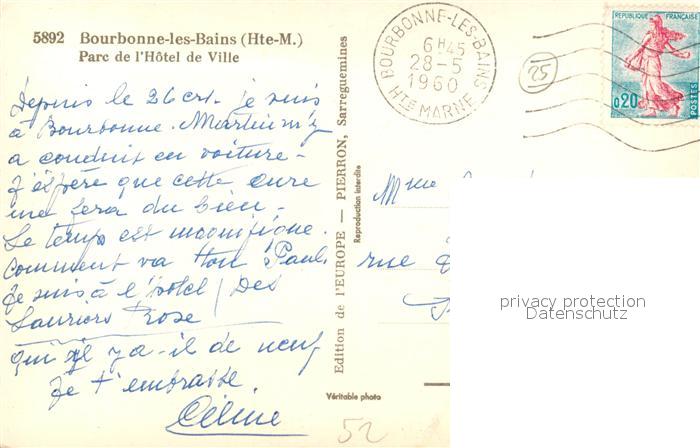 5892 Bourbonne-les-Bains (Hte-M.)
Parc de l'Hôtel de Ville
Depuis le 26 crt. je suis
à Bourbonne. Martin m'y
a conduit en voiture -
J'espère que cette cure
me fera du bien -
Le temps est magnifique.
Comment va ton Paul.
Je suis à l'hotel (Des
Lauriers Rose)
qui y a-il de neuf
Je t'embrasse.
Céline
Edition de l'EUROPE — PIERRON, Sarreguemines
Reproduction interdite
Véritable photo
BOURBONNE-LES-BAINS
6H45
28-5
1960
HTE MARNE
25
REPUBLIQUE FRANÇAISE
0,20
POSTES
Mme
rue
privacy protection
Datenschutz
52